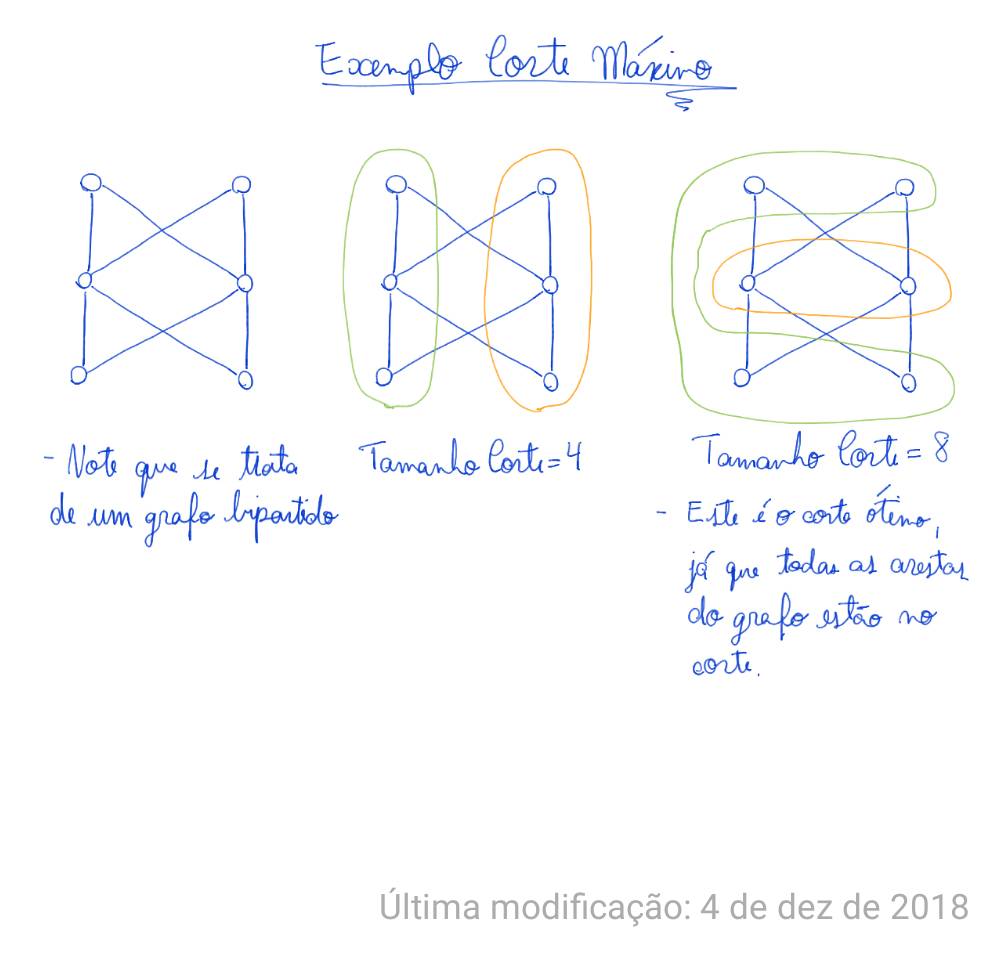 Exemplo Corte Máximo
- Note que se trata
de um grafo bipartido
Tamanho Corte = 4
Tamanho Corte = 8
- Este é o corte ótimo,
já que todas as arestas
do grafo estão no
corte.
Última modificação: 4 de dez de 2018